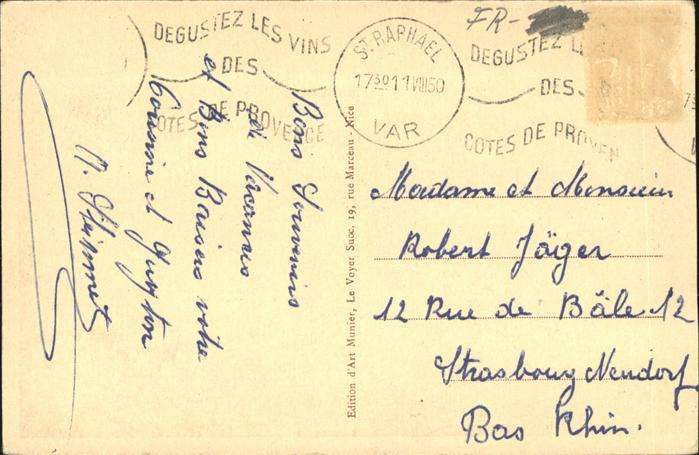 FR-
DEGUSTEZ LES VINS
DES
COTES DE PROVENCE
ST RAPHAEL
17 30 11 VIII 50
VAR
DEGUSTEZ L
DES
COTES DE PROVEN
Bons Souvenirs
de Vacances
et Bons Baisers votre
Cousine et
Edition d'Art Munier, Le Voyer Succ. 19, rue Marceau - Nice
Madame et Monsieur
Robert Jäger
12 Rue de Bâle 12
Strasbourg Neudorf
Bas Rhin.